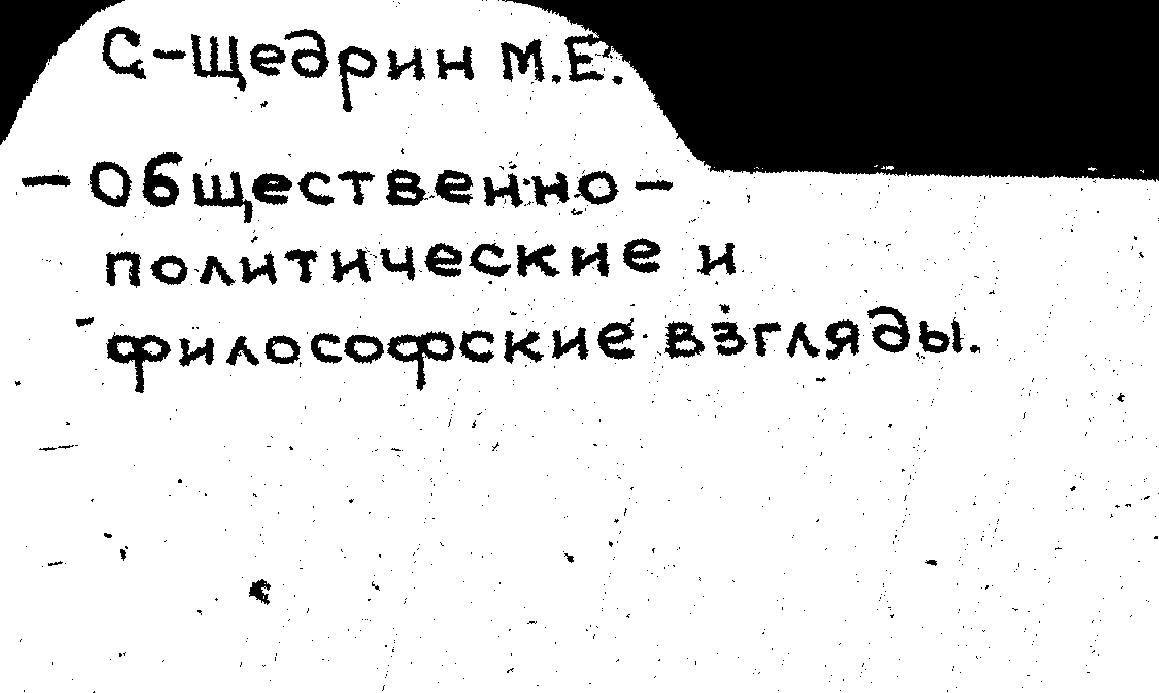 С-Щедрин М.Е.
- Общественно-
политические и
философские взгляды.